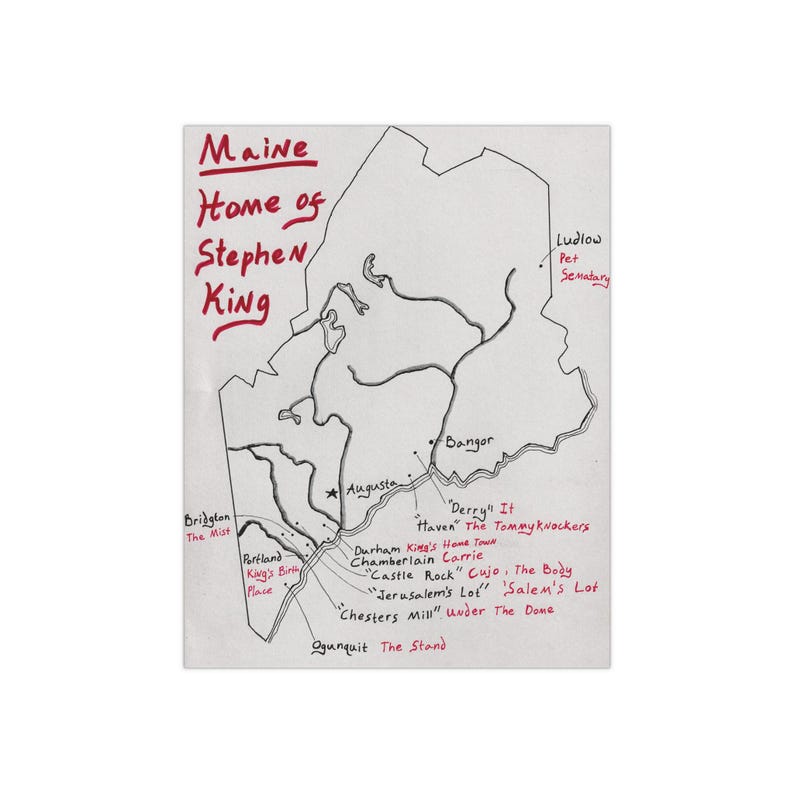 Maine
Home of
Stephen
King
Ludlow
Pet
Sematary
Bangor
Augusta
"Derry" It
"Haven" The Tommyknockers
Bridgton
The Mist
Durham King's Home Town
Chamberlain Carrie
Portland
King's Birth
Place
"Castle Rock" Cujo, The Body
"Jerusalem's Lot" 'Salem's Lot
"Chesters Mill" Under The Dome
Ogunquit The Stand